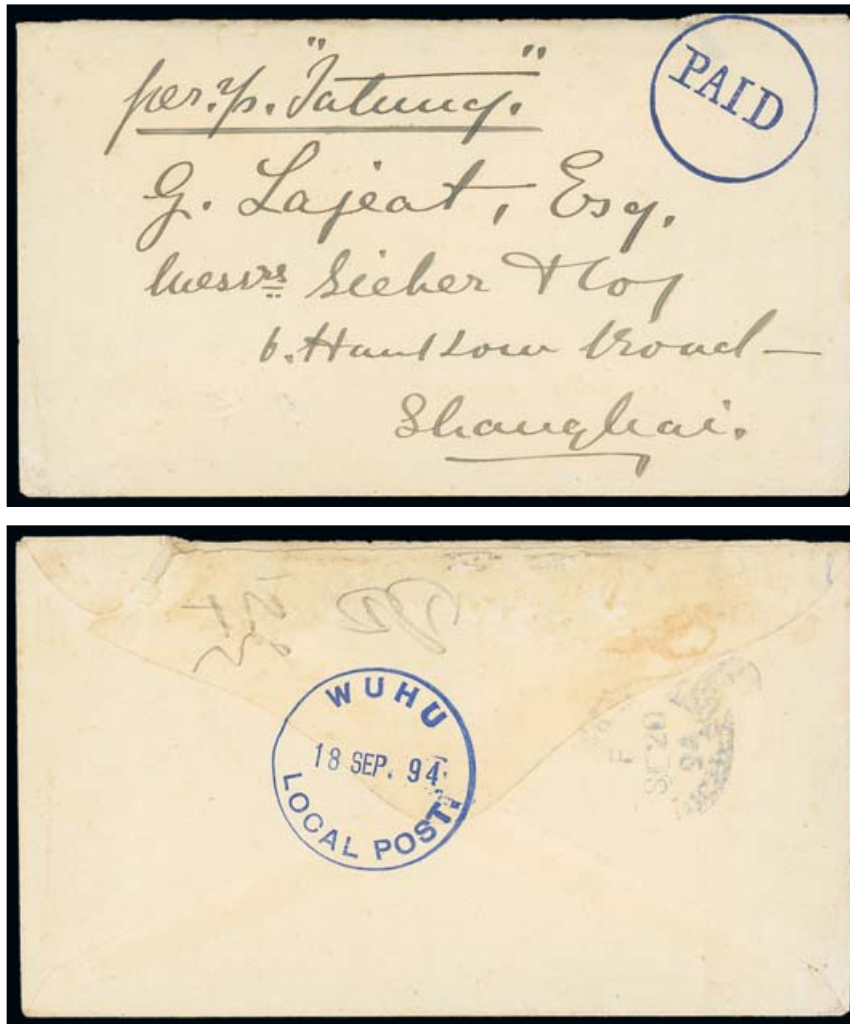 per. p. "Tatung."
PAID
G. Lajeat, Esq.
Messrs Sieber & Coy
6. Hankow Road—
Shanghai.
WUHU
18 SEP. 94
LOCAL POST.